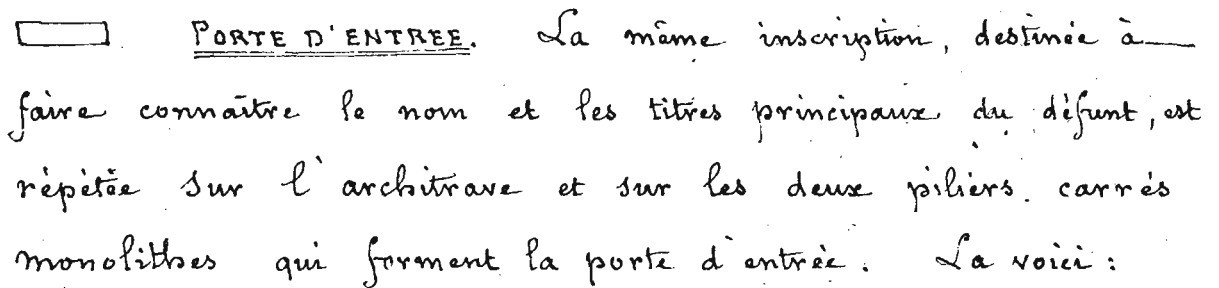 PORTE D'ENTREE. La même inscription, destinée à
faire connaître le nom et les titres principaux du défunt, est
répétée sur l'architrave et sur les deux piliers carrés
monolithes qui forment la porte d'entrée. La voici :